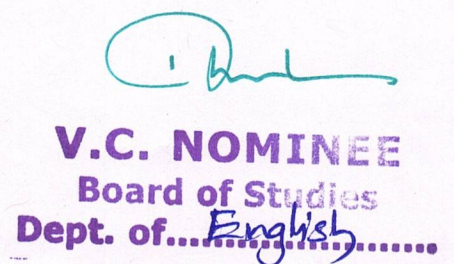 V.C. NOMINEE
Board of Studies
Dept. of.....English..........